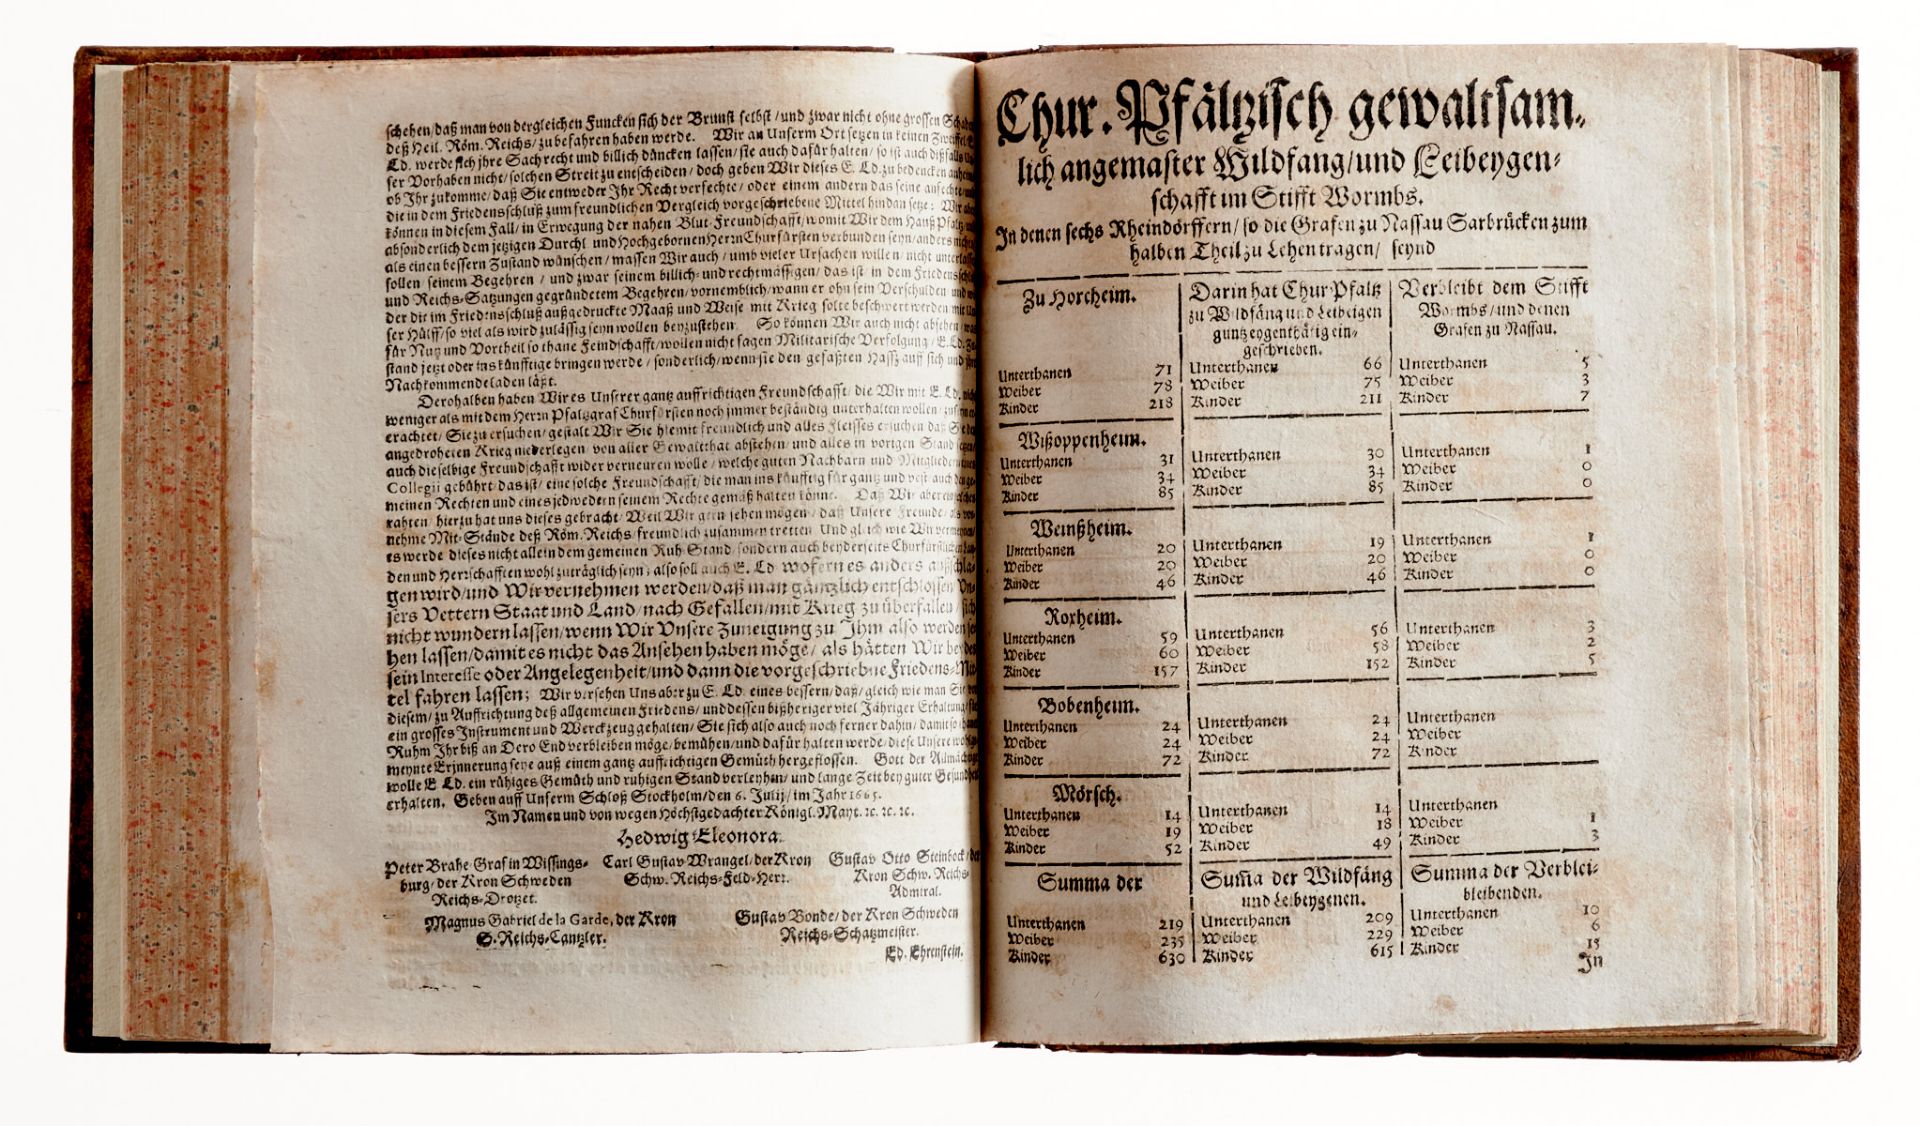 schehen/daß man von dergleichen Funcken sich der Brunst selbst/und zwar nicht ohne grossen
deß Heil. Röm. Reichs/zu befahren haben werde. Wir an Unserm Ort setzen in keinen Zweiffel
Ld. werde sich jhre Sach recht und billich düncken lassen/sie auch dafür halten/so ist auch dißfalls
ser Vorhaben nicht/solchen Streit zu entscheiden/doch geben Wir dieses E. Ld. zu bedencken
ob Jhr zukomme/daß Sie entweder Jhr Recht verfechte/oder einem andern das seine anfechte/
die in dem Friedensschluß zum freundlichen Vergleich vorgeschriebene Mittel hindan setze: Wir
können in diesem Fall/in Erwegung der nahen Blut-Freundschafft/womit Wir dem Hauß Pfaltz/
absonderlich dem jetzigen Durchl. und Hochgebornen Herrn Churfürsten verbunden seyn/anders
als einen bessern Zustand wünschen/massen Wir auch/umb vieler Ursachen willen/nicht
sollen seinem Begehren/und zwar seinem billich- und rechtmässigen/das ist in dem
und Reichs-Satzungen gegründetem Begehren/vornemblich/wann er ohn sein Verschulden und
der die im Friedensschluß außgedruckte Maaß und Weise mit Krieg solte beschwert werden mit
ser Hülff/so viel als wird zulässig seyn wollen beyzustehen. So können Wir auch nicht absehen/
für Nutz und Vortheil so thane Feindschafft/wollen nicht sagen Militarische Verfolgung/E. Ld.
stand jetzt oder ins künfftige bringen werde/sonderlich/wenn sie den gefaßten Haß auff sich und
Nachkommende laden läßt.
Derohalben haben Wir es Unserer gantz auffrichtigen Freundschafft die Wir mit E. Ld. nicht
weniger als mit dem Herrn Pfaltzgraf Churfürsten noch jmmer beständig unterhalten wollen/
erachtet/Sie zu ersuchen/gestalt Wir Sie hiemit freundlich und alles Fleisses ersuchen daß Sie
angedroheten Krieg niederlegen von aller Gewaltthat abstehen/und alles in vorigen Stand
auch dieselbige Freundschafft wider verneuren wolle/welche guten Nachbarn und Mitgliedern
Collegii gebührt das ist/eine solche Freundschafft/die man ins künfftig für gantz und vest auch
meinen Rechten und eines jedwedern seinem Rechte gemäß halten könne. Daß Wir aber
rahten/hierzu hat uns dieses gebracht/Weil Wir gern sehen mögen/daß Unsere Freunde/als
nehme Mit-Stände deß Röm. Reichs/freundlich zusammen tretten Und gleich wie Wir
es werde dieses nicht allein dem gemeinen Ruh-Stand/sondern auch beyderseits Churfürstlichen
den und Herrschafften wohl zuträglich seyn; also soll auch E. Ld wofern es anders außschla-
gen wird/und Wir vernehmen werden/daß man gäntzlich entschlossen Un-
sers Vettern Staat und Land/nach Gefallen/mit Krieg zu überfallen/sich
nicht wundern lassen/wenn Wir Unsere Zuneigung zu Jhm also werden
hen lassen/damit es nicht das Ansehen haben möge/als hätten Wir
sein Interesse oder Angelegenheit/und dann die vorgeschriebne Friedens-Mit-
tel fahren lassen; Wir versehen Uns aber zu E. Ld. eines bessern/daß/gleich wie man Sie
diesem/zu Auffrichtung deß allgemeinen Friedens/und dessen bißheriger viel Jähriger Erhaltung/
ein grosses Instrument und Werckzeug gehalten/Sie sich also auch noch ferner dahin/damit
Ruhm Jhr biß an Dero End verbleiben möge/bemühen/und dafür halten werde/diese Unsere
meynte Erinnerung seye auß einem gantz auffrichtigen Gemüth hergeflossen. Gott der Allmächtige
wolle E Ld. ein rühiges Gemüth und ruhigen Stand verleyhen/und lange Zeit bey guter Gesundheit
erhalten. Geben auff Unserm Schloß Stockholm/den 6. Julij/im Jahr 1665.
Jm Namen und von wegen Höchstgedachter Königl. Mayt. ꝛc. ꝛc. ꝛc.
Hedwig Eleonora.
Peter Brahe Graf in Wissings-
burg/der Kron Schweden
Reichs-Drotzet.
Carl Gustav Wrangel/der Kron
Schw. Reichs-Feld-Herr.
Gustav Otto Steinbock/der
Kron Schw. Reichs-
Admiral.
Magnus Gabriel de la Garde, der Kron
S. Reichs-Cantzler.
Gustav Bonde/der Kron Schweden
Reichs-Schatzmeister.
Ed. Ehrenstein.
Chur-Pfältzisch gewaltsam-
lich angemaster Wildfang/und Leibeygen-
schafft im Stifft Wormbs.
In denen sechs Rheindörffern/so die Grafen zu Nassau Sarbrücken zum
halben Theil zu Lehen tragen/seynd
Zu Horcheim.
Darin hat Chur-Pfaltz
zu Wildfäng und Leibeigen
guntzeygenthätig ein-
geschrieben.
Verbleibt dem Stifft
Wormbs/und denen
Grafen zu Nassau.
Unterthanen 71 Unterthanen 66 Unterthanen 5
Weiber 78 Weiber 75 Weiber 3
Kinder 218 Kinder 211 Kinder 7
Wißoppenheim.
Unterthanen 31 Unterthanen 30 Unterthanen 1
Weiber 34 Weiber 34 Weiber 0
Kinder 85 Kinder 85 Kinder 0
Weinßheim.
Unterthanen 20 Unterthanen 19 Unterthanen 1
Weiber 20 Weiber 20 Weiber 0
Kinder 46 Kinder 46 Kinder 0
Roxheim.
Unterthanen 59 Unterthanen 56 Unterthanen 3
Weiber 60 Weiber 58 Weiber 2
Kinder 157 Kinder 152 Kinder 5
Bobenheim.
Unterthanen 24 Unterthanen 24 Unterthanen
Weiber 24 Weiber 24 Weiber
Kinder 72 Kinder 72 Kinder
Mörsch.
Unterthanen 14 Unterthanen 14 Unterthanen
Weiber 19 Weiber 18 Weiber 1
Kinder 52 Kinder 49 Kinder 3
Summa der
Summa der Wildfäng
und Leibeygenen.
Summa der Verblei-
bleibenden.
Unterthanen 219 Unterthanen 209 Unterthanen 10
Weiber 235 Weiber 229 Weiber 6
Kinder 630 Kinder 615 Kinder 15
In